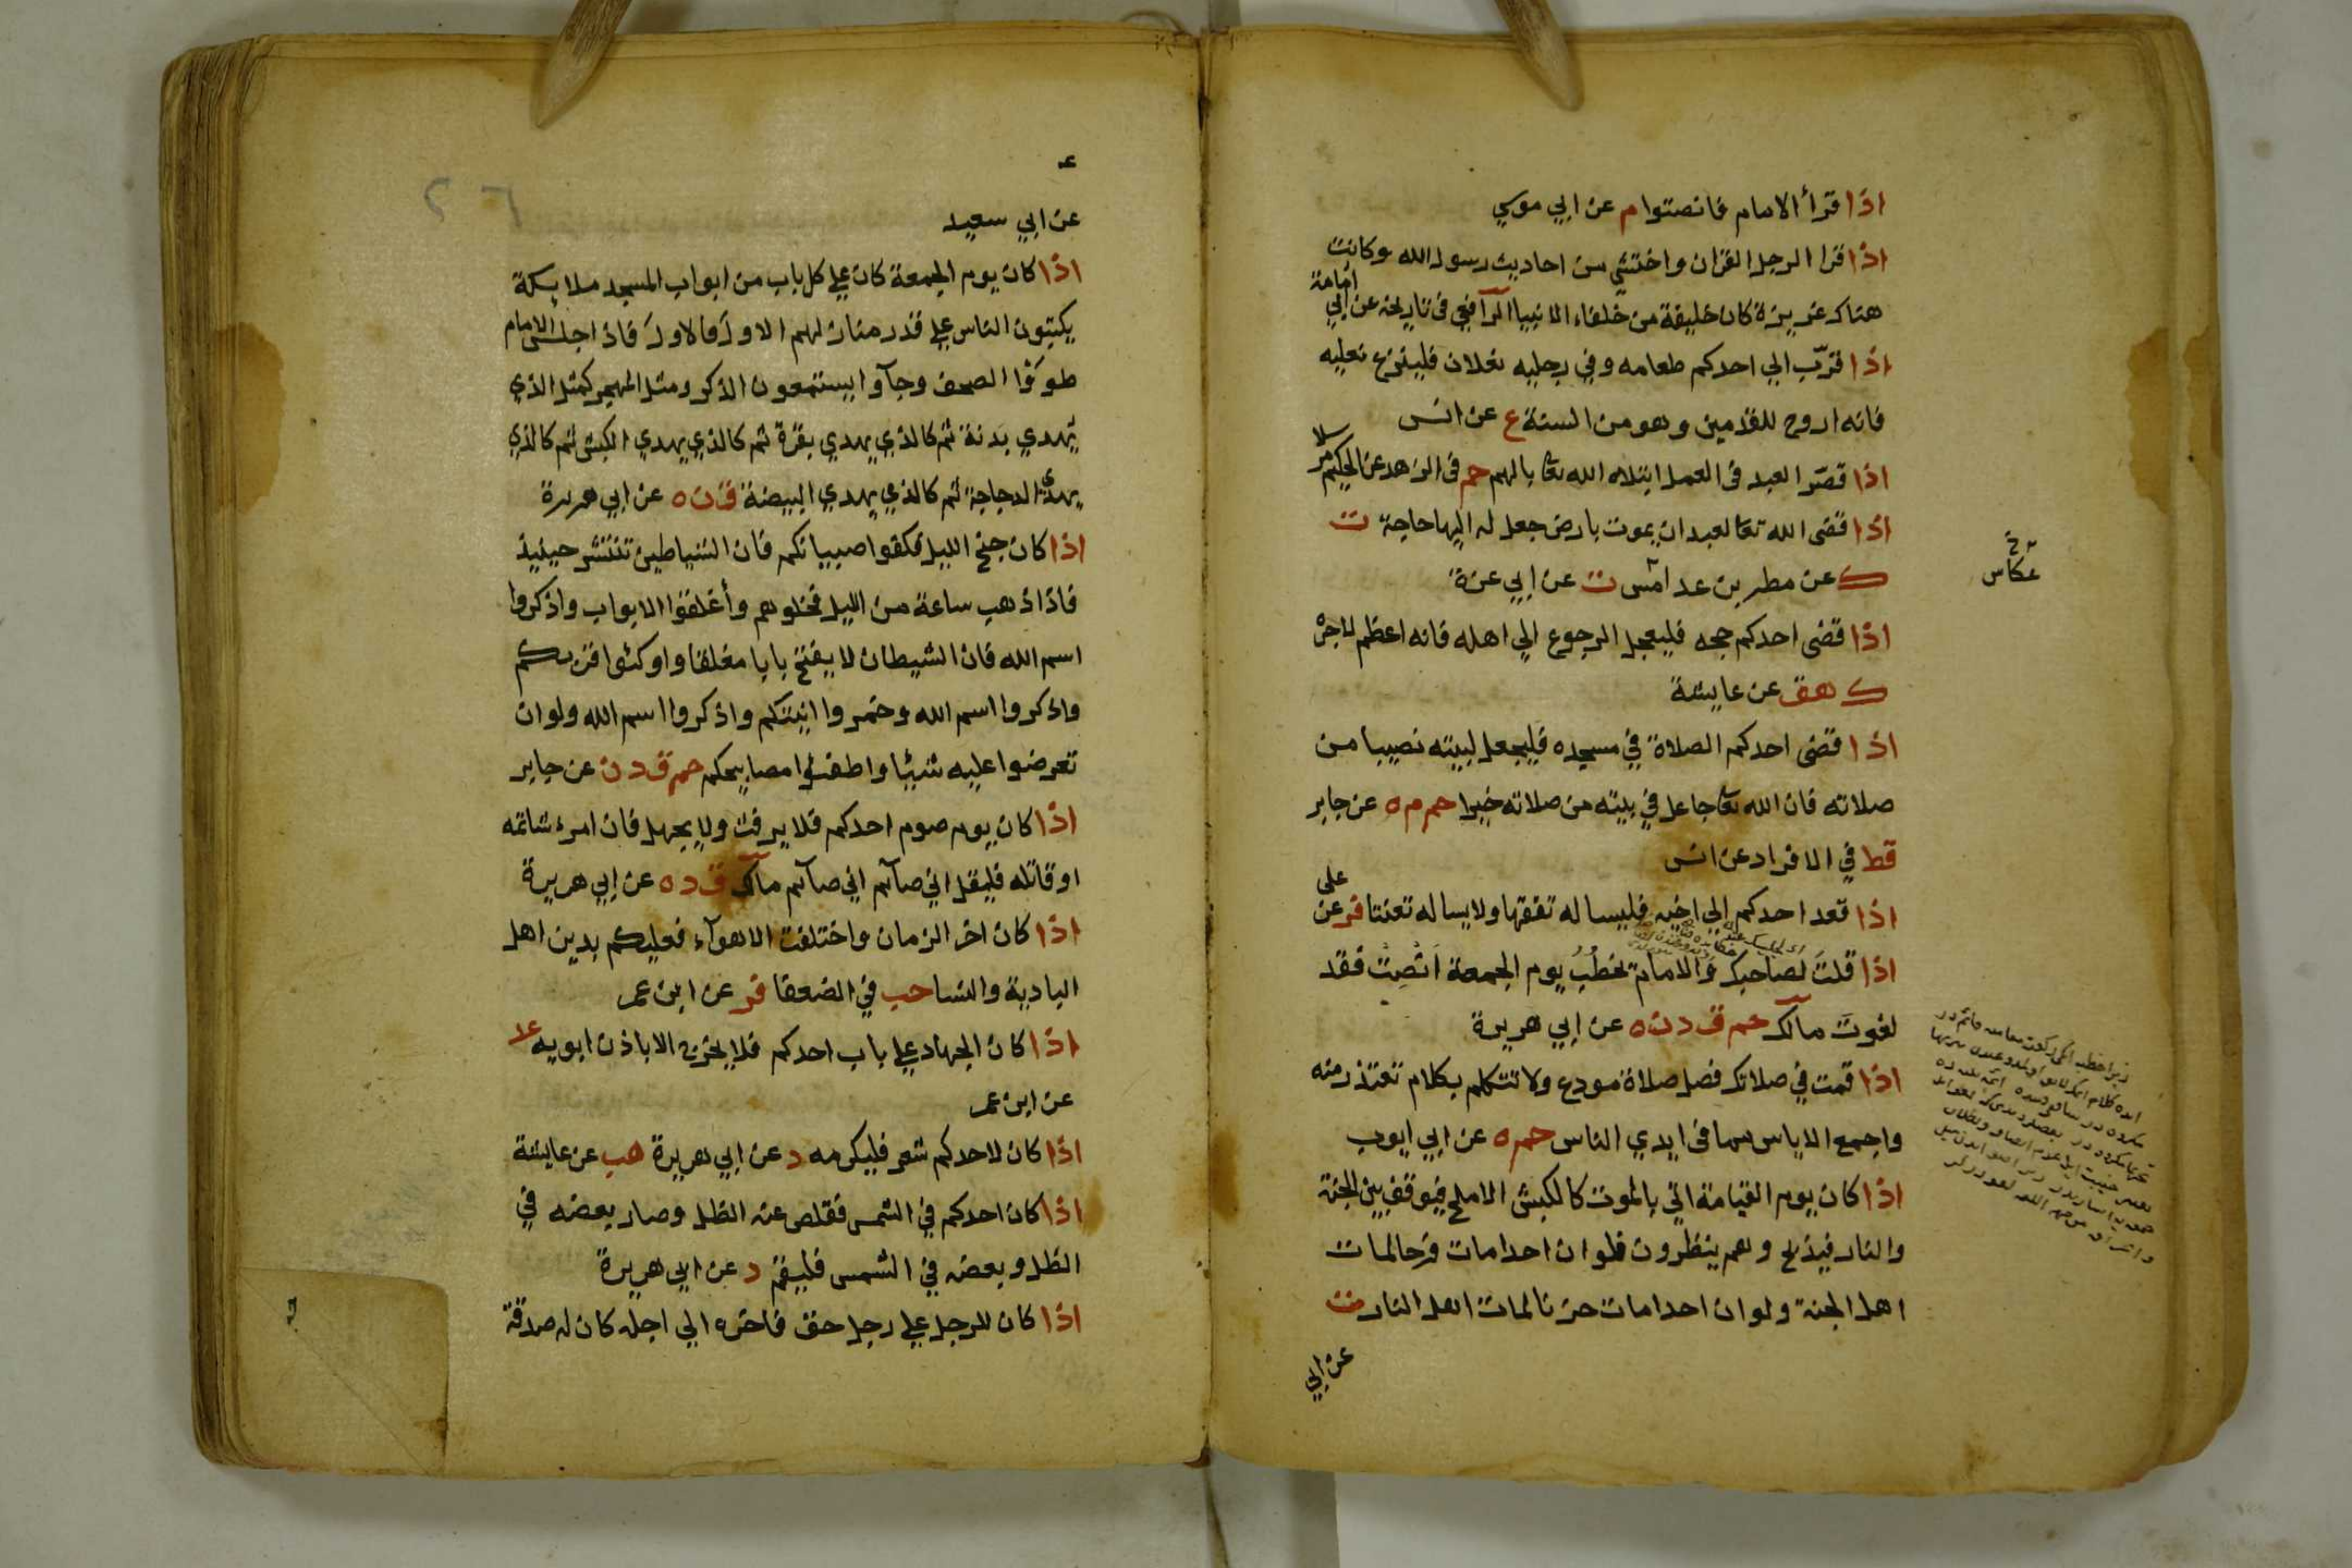 اذا قرأ الامام فانصتوا م عن ابي موسي
اذا قرا الرجل القران واحتشي من احاديث رسول الله وكانت
هناك غريزة كان خليفة من خلفاء الانبياا الرافعي في تاريخه عن ابي امامة
اذا قرّب الي احدكم طعامه وفي رجليه نعلان فلينزع نعليه
فانه اروح للقدمين وهو من السنة ع عن انس
اذا قصّر العبد في العمل ابتلاه الله تعا بالهم حم في الزهد عن الحكم مرسلا
اذا قضي الله تعا لعبد ان يموت بارض جعل له اليها حاجة ت
ك عن مطر بن عكامس ت عن ابي عزة
عكاس
اذا قضي احدكم حجه فليعجل الرجوع الي اهله فانه اعظم لاجره
ك هق عن عايشة
اذا قضي احدكم الصلاة في مسجده فليجعل لبيته نصيبا من
صلاته فان الله تعا جاعل في بيته من صلاته خيرا حم م ه عن جابر
قط في الافراد عن انس
اذا قعد احدكم الي اخيه فليساله تفقها ولا يساله تعنتا فر عن علي
اذا قلتَ لصاحبك وَالامام يخطُبُ يوم الجمعة اَنْصِتْ فقد
لغوت مالك حم ق د ن ه عن ابي هريرة
اذا قمت في صلاتك فصل صلاة مودع ولا تتكلم بكلام تعتذر منه
واجمع الاياس مما في ايدي الناس حم ه عن ابي ايوب
اذا كان يوم القيامة اتي بالموت كالكبش الاملح فيوقف بين الجنة
والنار فيذبح وهم ينظرون فلو ان احدا مات فرحا لمات
اهل الجنة ولو ان احدا مات حزنا لمات اهل النار ت
عن ابي
عن ابي سعيد
اذا كان يوم الجمعة كان علي كل باب من ابواب المسجد ملايكة
يكتبون الناس علي قدر منازلهم الاول فالاول فاذا جلس الامام
طووا الصحف وجآوا يستمعون الذكر ومثل المهجر كمثل الذي
يهدي بدنة ثم كالذي يهدي بقرة ثم كالذي يهدي الكبش ثم كالذي
يهدي الدجاجة ثم كالذي يهدي البيضة ق ن ه عن ابي هريرة
اذا كان جنح الليل فكفوا صبيانكم فان الشياطين تنتشر حينيذ
فاذا ذهب ساعة من الليل فخلوهم وأغلقوا الابواب واذكروا
اسم الله فان الشيطان لا يفتح بابا مغلقا واوكئوا قربكم
واذكروا اسم الله وخمروا انيتكم واذكروا اسم الله ولو ان
تعرضوا عليه شيئا واطفئوا مصابيحكم حم ق د ن عن جابر
اذا كان يوم صوم احدكم فلا يرفث ولا يجهل فان امرء شاتمه
او قاتله فليقل اني صآئم اني صآئم مالك ق د ه عن ابي هريرة
اذا كان اخر الزمان واختلفت الاهوآء فعليكم بدين اهل
البادية والنسا حب في الضعفا فر عن ابن عمر
اذا كان الجهاد علي باب احدكم فلا يخرج الا باذن ابويه عد
عن ابن عمر
اذا كان لاحدكم شعر فليكرمه د عن ابي هريرة هب عن عايشة
اذا كان احدكم في الشمس فقلص عنه الظل وصار بعضه في
الظل وبعضه في الشمس فليقم د عن ابي هريرة
اذا كان للرجل علي رجل حق فاخره الي اجله كان له صدقة